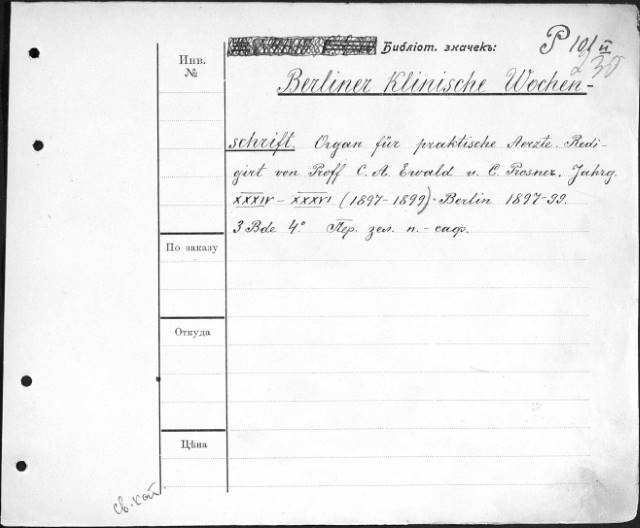 Библіот. значекъ: P 101 II
230
Инв.
№
Berliner Klinische Wochen-
schrift. Organ für praktische Aerzte. Redi-
girt von Proff C. A. Ewald u. C. Posner, Jahrg.
XXXIV - XXXVI (1897-1899). Berlin 1897-99.
3 Bde 4° Пер. зел. п. - саф.
По заказу
Откуда
Цѣна